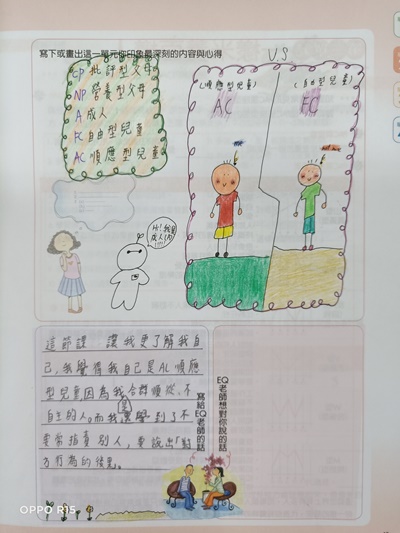 寫下或畫出這一單元你印象最深刻的內容與心得
CP 批評型父母
NP 營養型父母
A 成人
FC 自由型兒童
AC 順應型兒童
V.S
(順應型兒童)
AC
(自由型兒童)
FC
Hi! 我是
成人(A)
!!!!
這節課 讓我更了解我自
己,我覺得我自己是AC順應
型兒童因為我合群順從、不
自主的人。而我還學到了不
要常指責別人,要說出「對
方行為的後果」
寫給EQ老師的話
EQ老師想對你說的話
OPPO R15